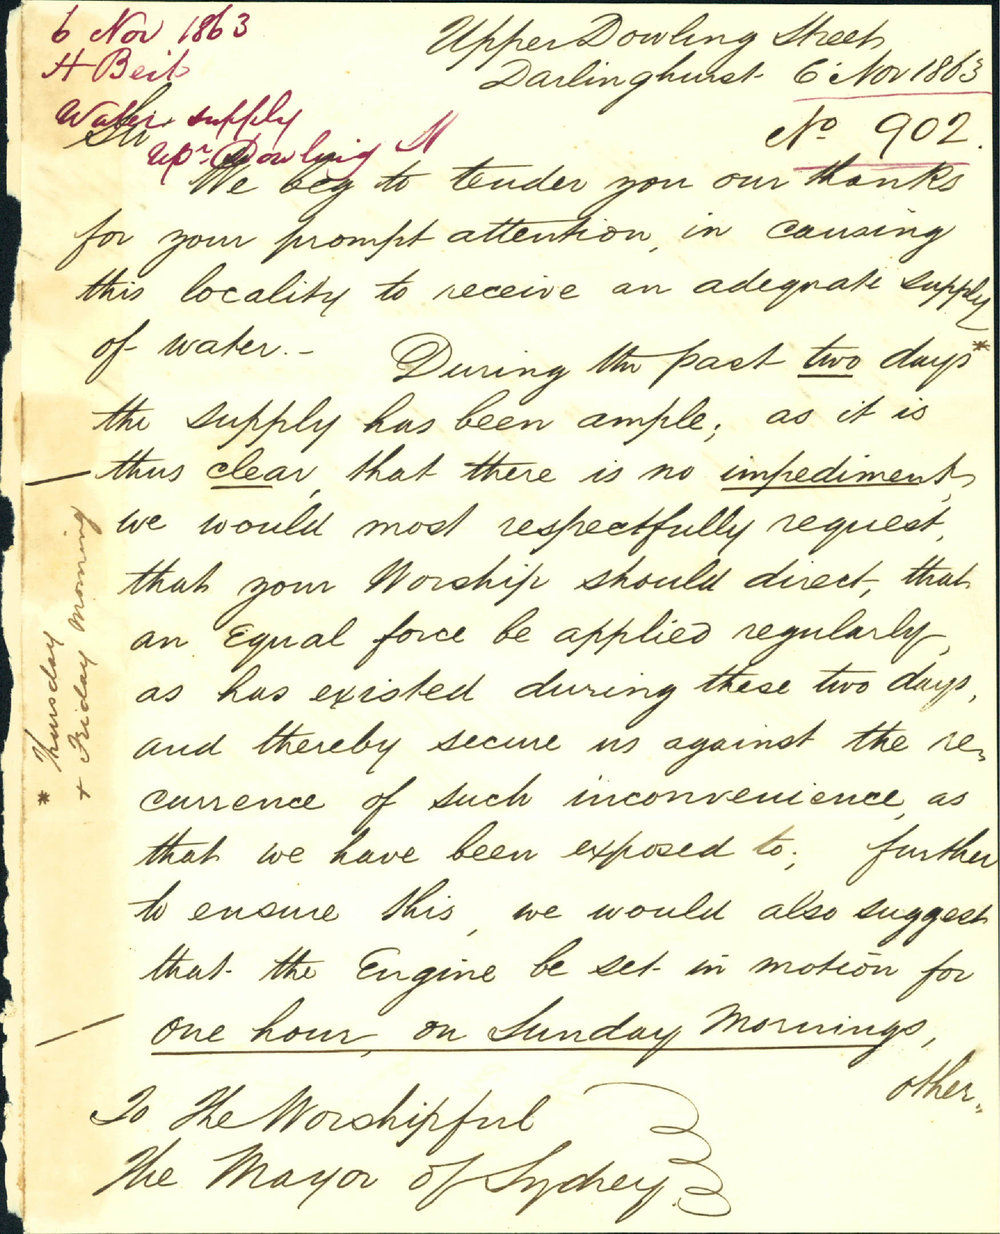 6 Nov 1863
H Beit
Water supply
Upr. Dowling St
Upper Dowling Street
Darlinghurst 6 Nov 1863
No 902.
Sir
We beg to tender you our thanks
for your prompt attention, in causing
this locality to receive an adequate supply
of water.- During the past two days*
the supply has been ample; as it is
thus clear, that there is no impediment,
we would most respectfully request,
that your Worship should direct, that
an Equal force be applied regularly,
as has existed during these two days,
and thereby secure us against the re=
currence of such inconvenience, as
that we have been exposed to; further
to ensure this, we would also suggest
that the Engine be set in motion for
one hour, on Sunday Mornings,
other=
To The Worshipful
The Mayor of Sydney.
* Thursday
+ Friday Morning